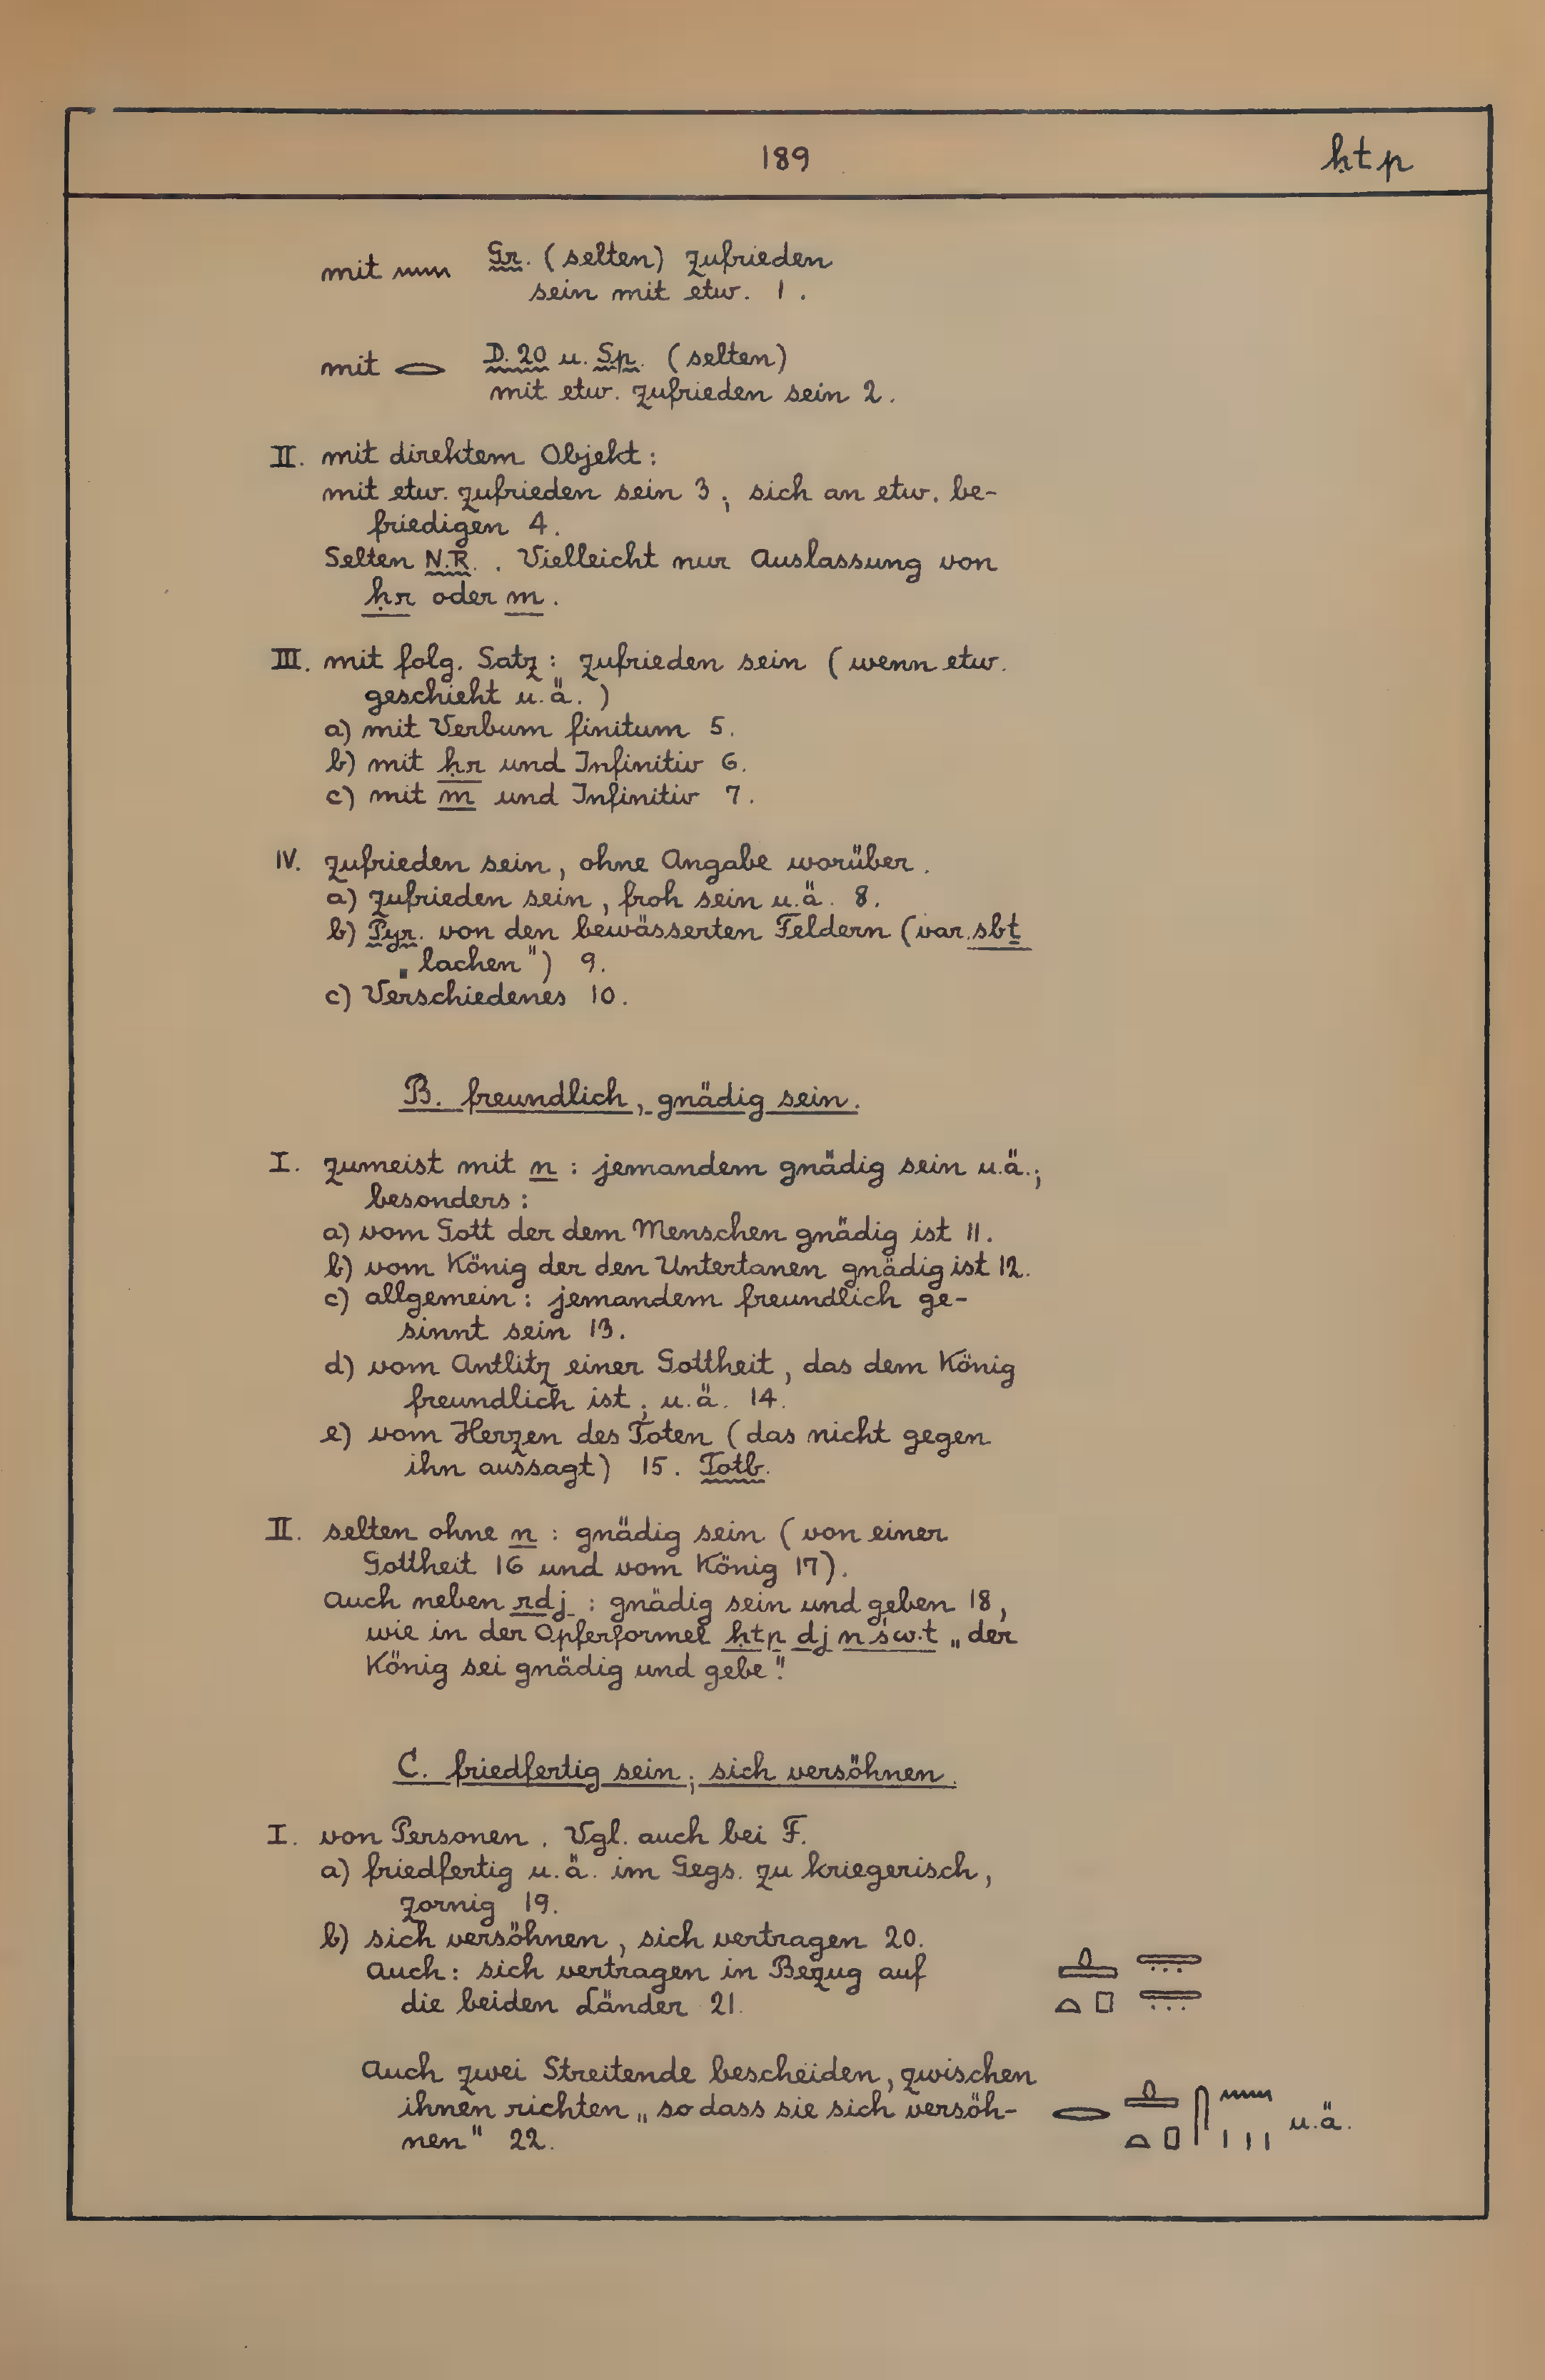 189
ḥtp
mit 𓈖 Gr. (selten) zufrieden
sein mit etw. 1.
mit 𓂋 D. 20 u. Sp. (selten)
mit etw. zufrieden sein 2.
II. mit direktem Objekt:
mit etw. zufrieden sein 3; sich an etw. be-
friedigen 4.
Selten N.R.. Vielleicht nur Auslassung von
ḥr oder m.
III. mit folg. Satz: zufrieden sein (wenn etw.
geschieht u.ä.)
a) mit Verbum finitum 5.
b) mit ḥr und Infinitiv 6.
c) mit m und Infinitiv 7.
IV. zufrieden sein, ohne Angabe worüber.
a) zufrieden sein, froh sein u.ä. 8.
b) Pyr. von den bewässerten Feldern (var. sbṯ
„lachen") 9.
c) Verschiedenes 10.
B. freundlich, gnädig sein.
I. zumeist mit n: jemandem gnädig sein u.ä.;
besonders:
a) vom Gott der dem Menschen gnädig ist 11.
b) vom König der den Untertanen gnädig ist 12.
c) allgemein: jemandem freundlich ge-
sinnt sein 13.
d) vom Antlitz einer Gottheit, das dem König
freundlich ist; u.ä. 14.
e) vom Herzen des Toten (das nicht gegen
ihn aussagt) 15. Totb.
II. selten ohne n: gnädig sein (von einer
Gottheit 16 und vom König 17).
Auch neben rdj: gnädig sein und geben 18,
wie in der Opferformel ḥtp dj n św.t „der
König sei gnädig und gebe".
C. friedfertig sein; sich versöhnen.
I. von Personen. Vgl. auch bei F.
a) friedfertig u.ä. im Gegs. zu kriegerisch,
zornig 19.
b) sich versöhnen, sich vertragen 20.
Auch: sich vertragen in Bezug auf
die beiden Länder 21. 𓊵𓏏𓊪𓇿𓇿
Auch zwei Streitende bescheiden, zwischen
ihnen richten „so dass sie sich versöh-
nen" 22. 𓂋𓊵𓏏𓊪𓋴𓈖𓏥 u.ä.